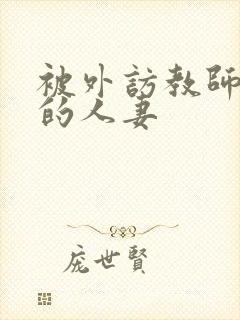 被外訪教師
的人妻
庞世賢